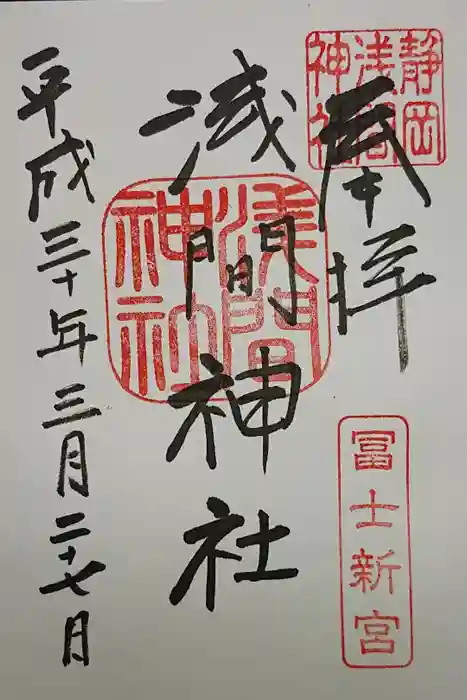 静岡
浅間
神社
奉拝
冨士新宮
浅間神社
浅間
神社
平成三十年三月二十七月